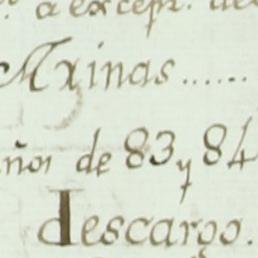 a except. de
Mxinas......
años de 83 y 84
descargo.